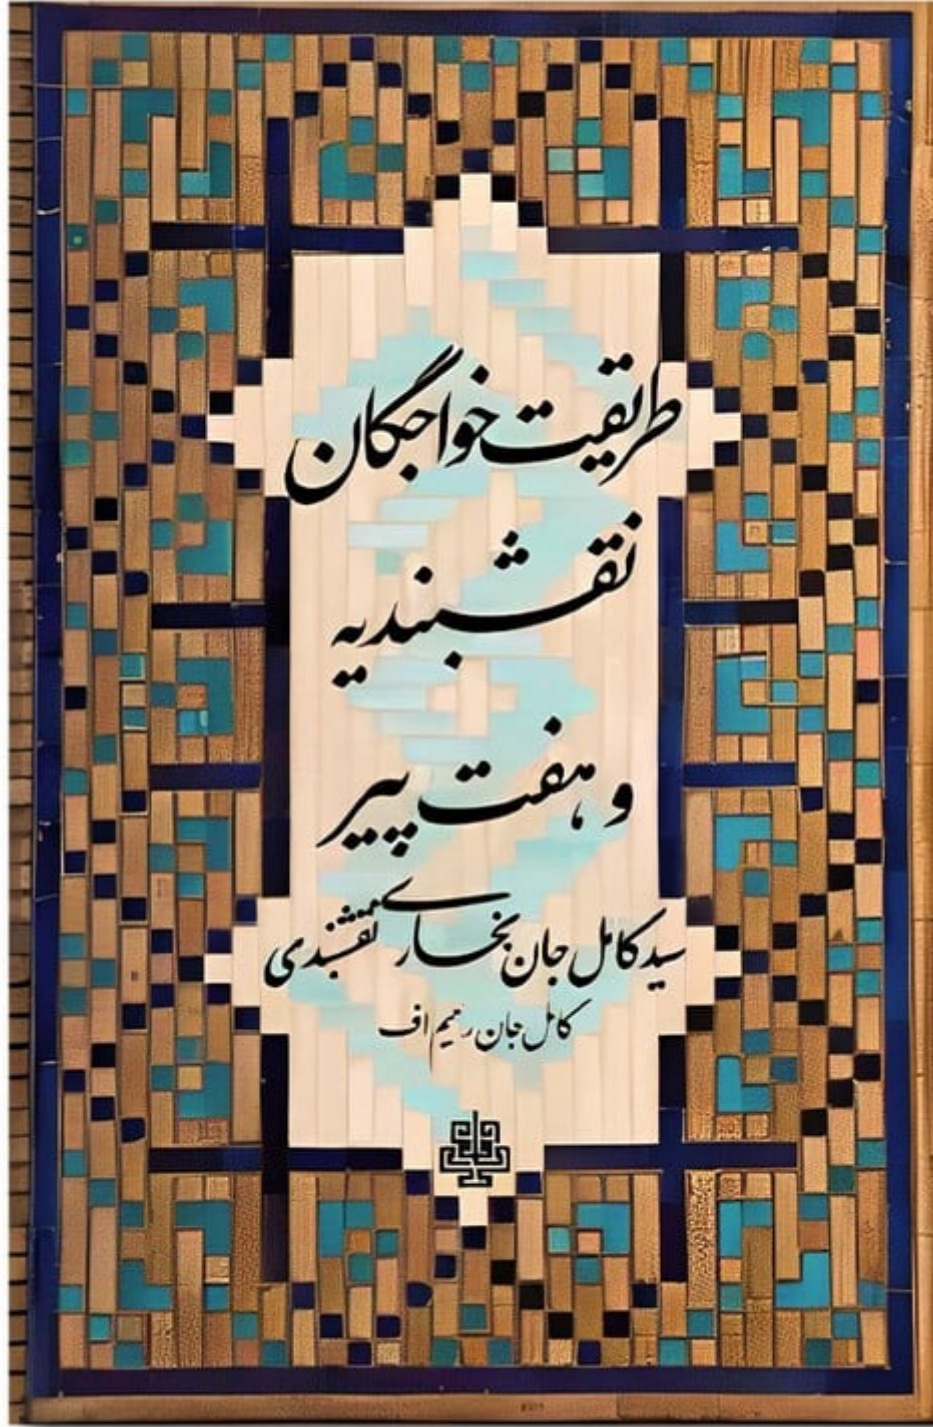 طریقت خواجگان
نقشبندیه
و هفت پیر
سید کامل جان بخاری نقشبندی
کامل جان رحیم اف